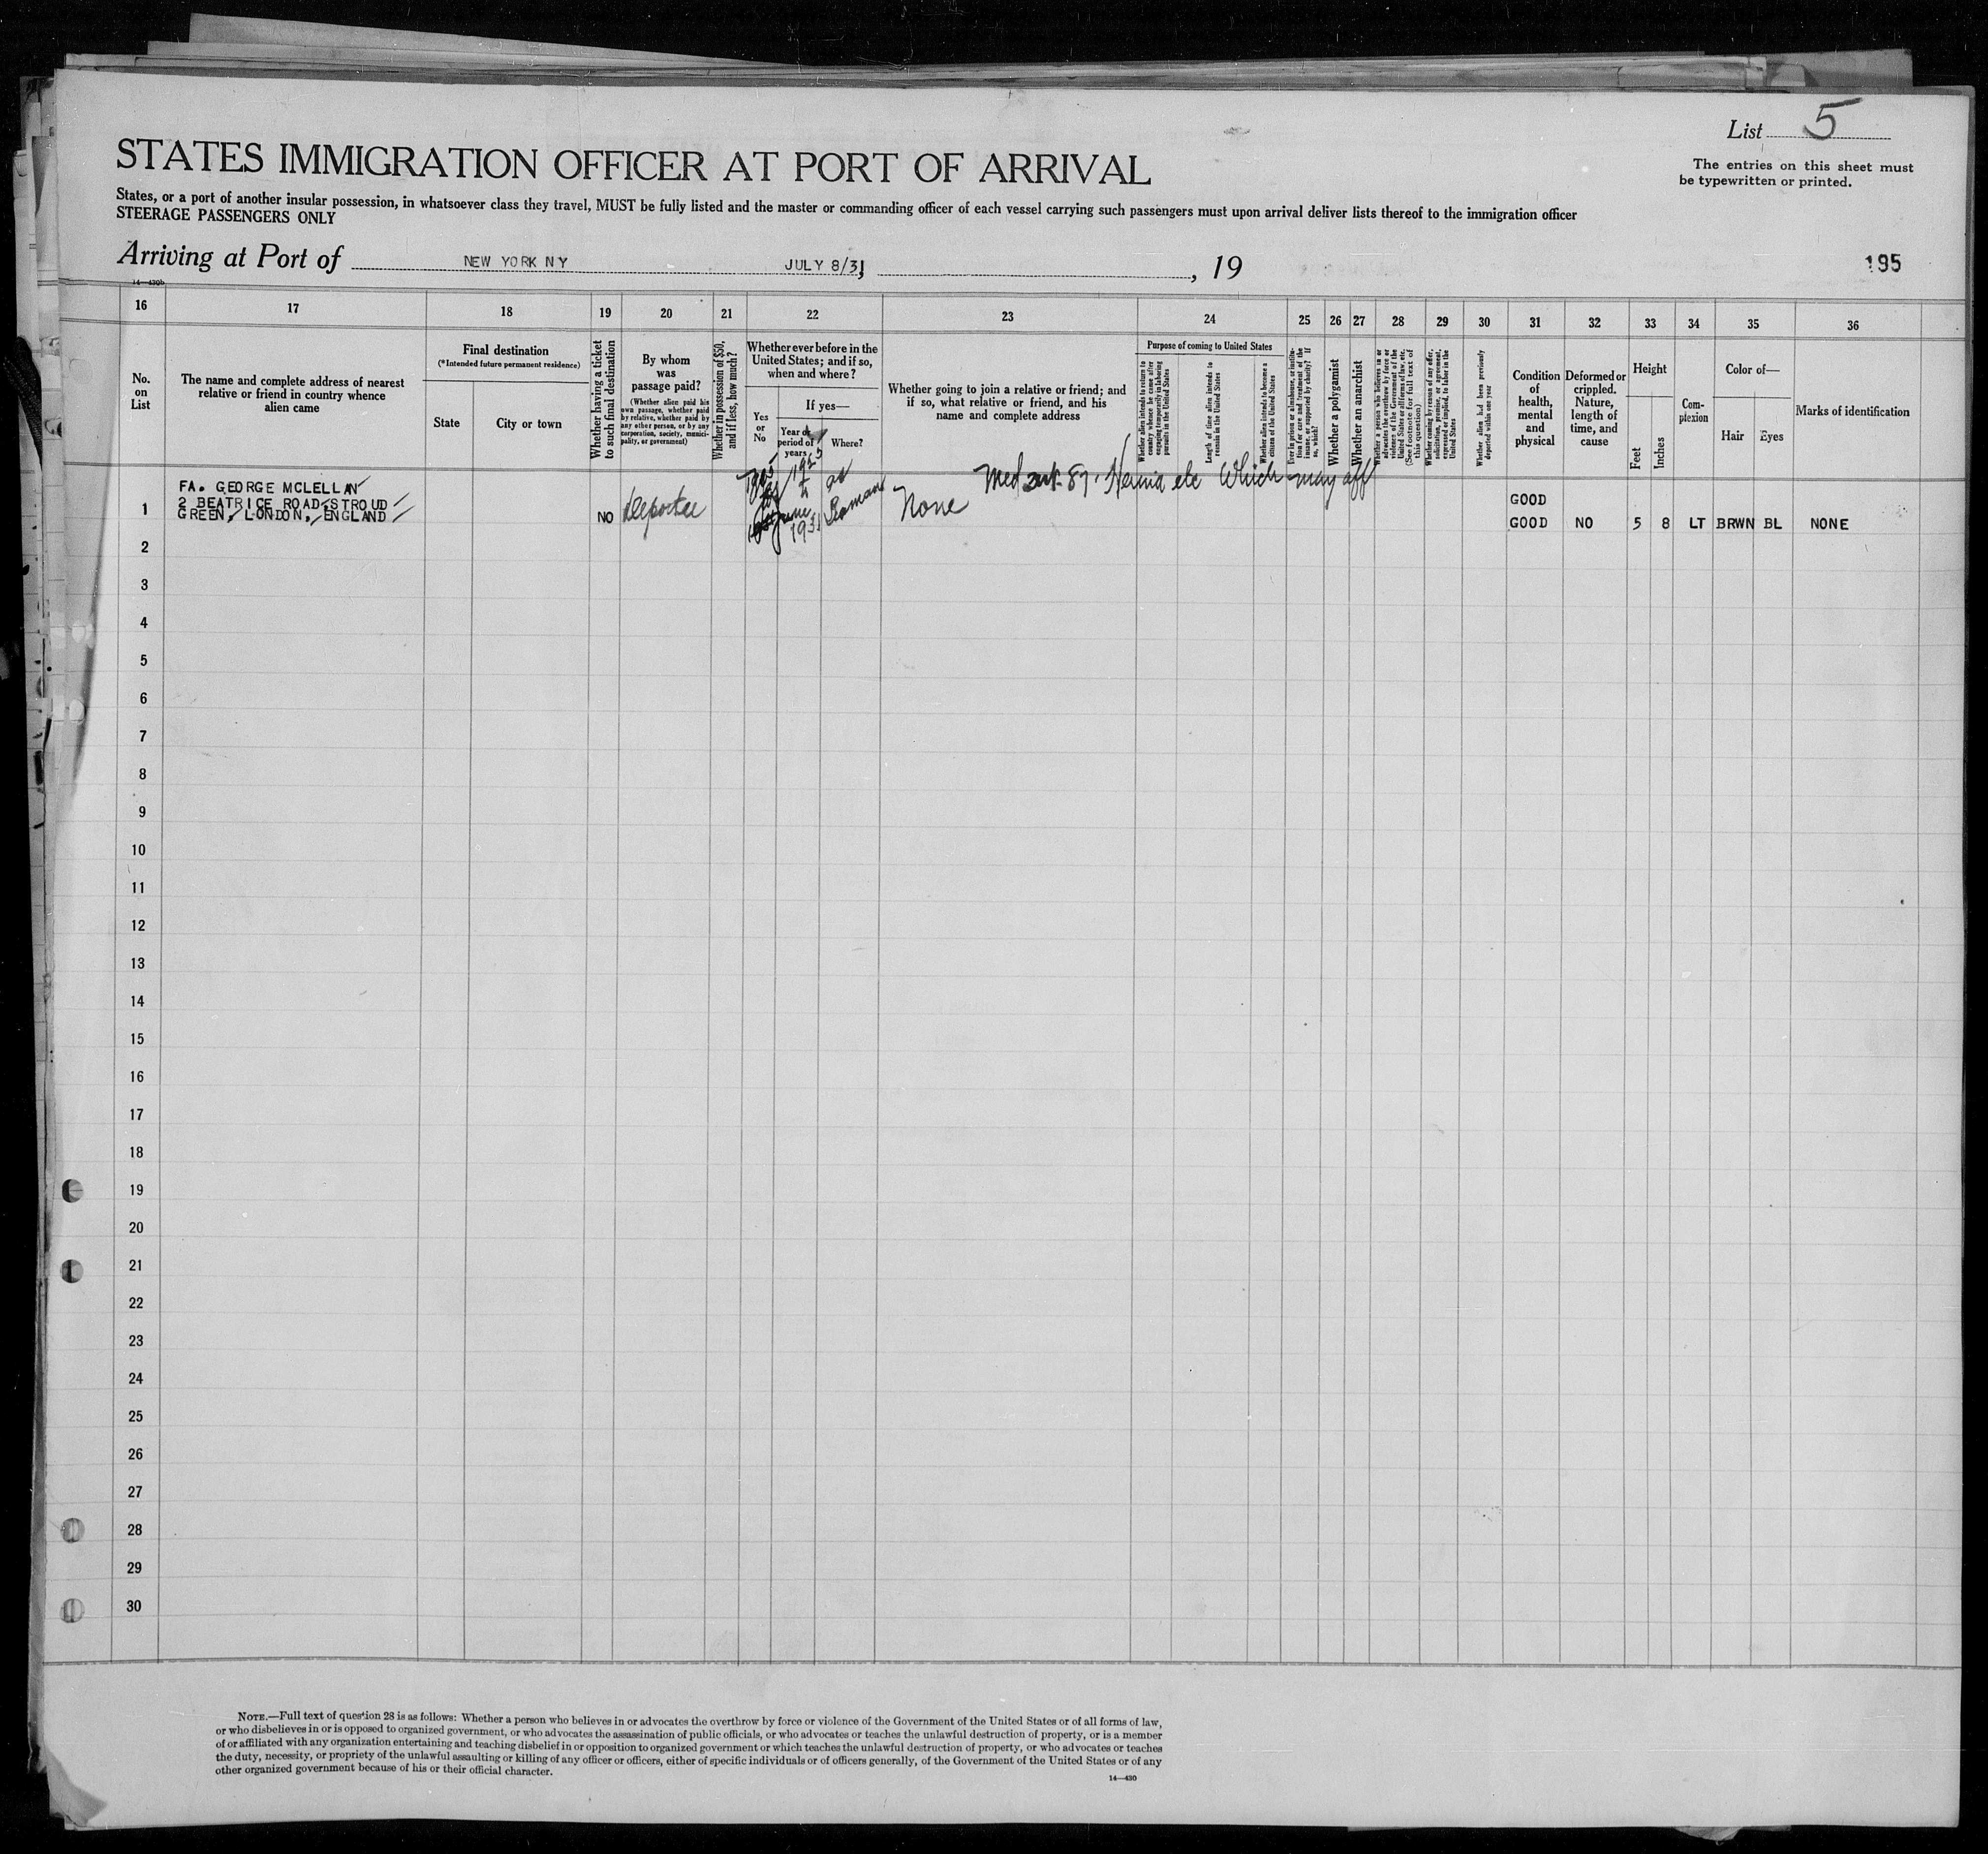 List 5
The entries on this sheet must
be typewritten or printed.
STATES IMMIGRATION OFFICER AT PORT OF ARRIVAL
States, or a port of another insular possession, in whatsoever class they travel, MUST be fully listed and the master or commanding officer of each vessel carrying such passengers must upon arrival deliver lists thereof to the immigration officer
STEERAGE PASSENGERS ONLY
Arriving at Port of NEW YORK NY JULY 8/31, , 19
195
14—430b
16 17 18 19 20 21 22 23 24 25 26 27 28 29 30 31 32 33 34 35 36
No.
on
List
The name and complete address of nearest
relative or friend in country whence
alien came
Final destination
(*Intended future permanent residence)
State
City or town
Whether having a ticket
to such final destination
By whom
was
passage paid?
(Whether alien paid his
own passage, whether paid
by relative, whether paid by
any other person, or by any
corporation, society, munici-
pality, or government)
Whether in possession of $50,
and if less, how much?
Whether ever before in the
United States; and if so,
when and where?
Yes
or
No
If yes—
Year or
period of
years
Where?
Whether going to join a relative or friend; and
if so, what relative or friend, and his
name and complete address
Purpose of coming to United States
Whether alien intends to return to
country whence he came after
engaging temporarily in laboring
pursuits in the United States
Length of time alien intends to
remain in the United States
Whether alien intends to become a
citizen of the United States
Ever in prison or almshouse, or institu-
tion for care and treatment of the
insane, or supported by charity? If
so, which?
Whether a polygamist
Whether an anarchist
Whether a person who believes in or
advocates the overthrow by force or
violence of the Government of the
United States or all forms of law, etc.
(See footnote for full text of
this question)
Whether coming by reason of any offer,
solicitation, promise, or agreement,
expressed or implied, to labor in the
United States
Whether alien had been previously
deported within one year
Condition
of
health,
mental
and
physical
Deformed or
crippled.
Nature,
length of
time, and
cause
Height
Feet
Inches
Com-
plexion
Color of—
Hair
Eyes
Marks of identification
Med cert 87. Hernia etc Which may aff
FA. GEORGE MCLELLAN
2 BEATRICE ROAD, STROUD
GREEN, LONDON, ENGLAND
1 NO Deportee 1925 1931 Seaman None
GOOD
GOOD NO 5 8 LT BRWN BL NONE
2
3
4
5
6
7
8
9
10
11
12
13
14
15
16
17
18
19
20
21
22
23
24
25
26
27
28
29
30
NOTE.—Full text of question 28 is as follows: Whether a person who believes in or advocates the overthrow by force or violence of the Government of the United States or of all forms of law,
or who disbelieves in or is opposed to organized government, or who advocates the assassination of public officials, or who advocates or teaches the unlawful destruction of property, or is a member
of or affiliated with any organization entertaining and teaching disbelief in or opposition to organized government or which teaches the unlawful destruction of property, or who advocates or teaches
the duty, necessity, or propriety of the unlawful assaulting or killing of any officer or officers, either of specific individuals or of officers generally, of the Government of the United States or of any
other organized government because of his or their official character.
14—430